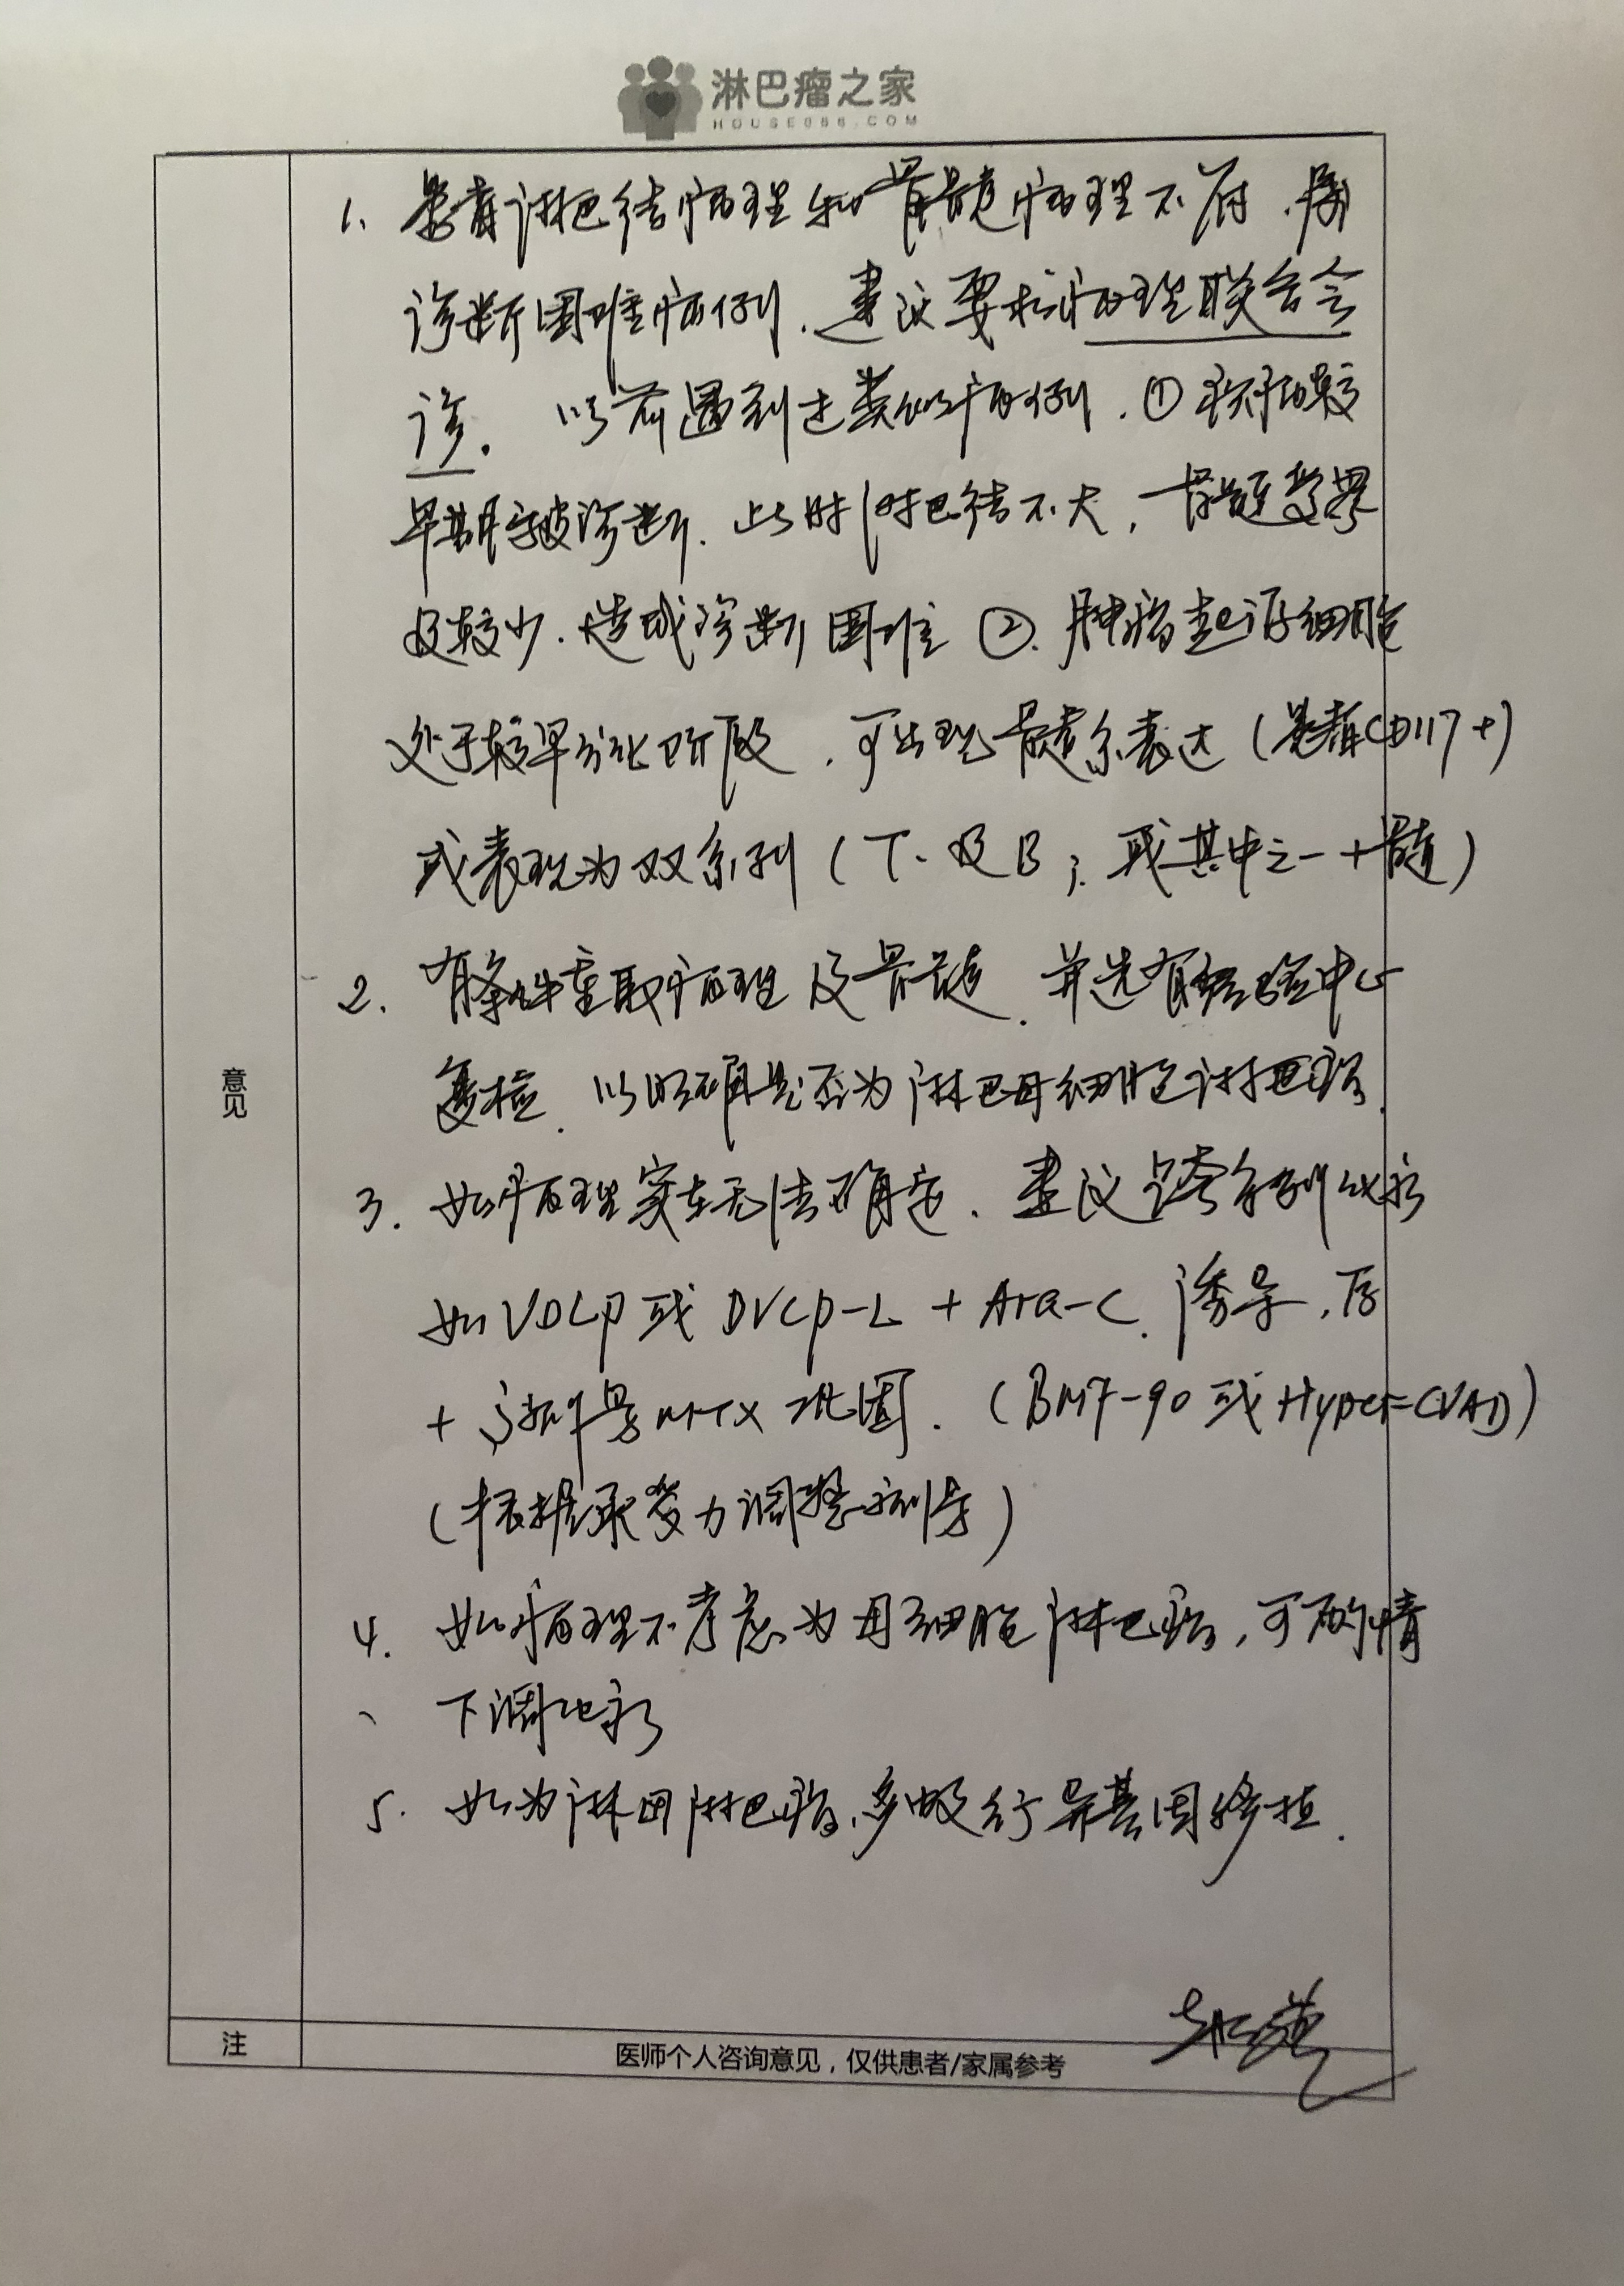 淋巴瘤之家
HOUSE086.COM
意见
1、患者淋巴结病理和骨髓病理不符,属
诊断困难病例,建议要求病理联合会
诊。以前遇到过类似病例,①疾病较
早期被诊断,此时淋巴结不大,骨髓受累
及较少,造成诊断困难②、肿瘤起源细胞
处于较早分化阶段,可出现髓系表达(患者CD117+)
或表现为双系列(T、及B;或其中之一+髓)
2、有条件重取病理及骨髓,并选有经验中心
复核,以明确是否为淋巴母细胞淋巴瘤
3、如病理实在无法确定,建议跨系列化疗
如VDLP或DVCP-L+Ara-C诱导,后
+ MTX巩固,(BMF-90或Hyper-CVAD)
(根据承受力调整剂量)
4、如病理不考虑为母细胞淋巴瘤,可酌情
下调化疗
5、如为淋母淋巴瘤,积极行异基因移植.
注
医师个人咨询意见,仅供患者/家属参考